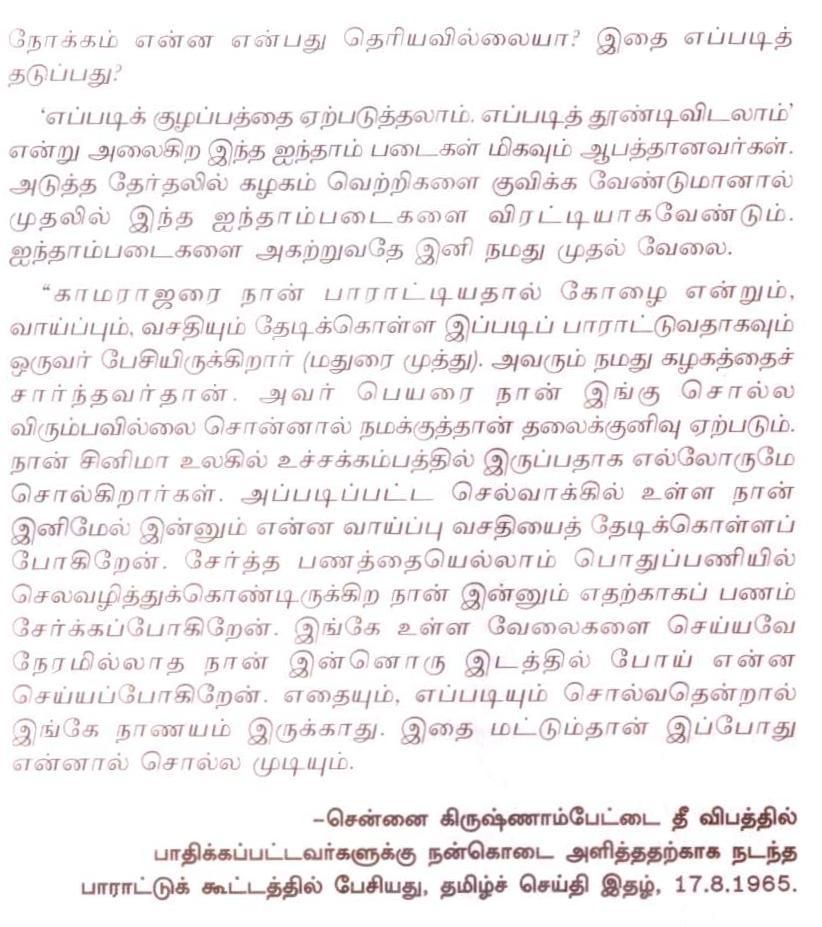 நோக்கம் என்ன என்பது தெரியவில்லையா? இதை எப்படித்
தடுப்பது?
'எப்படிக் குழப்பத்தை ஏற்படுத்தலாம். எப்படித் தூண்டிவிடலாம்'
என்று அலைகிற இந்த ஐந்தாம் படைகள் மிகவும் ஆபத்தானவர்கள்.
அடுத்த தேர்தலில் கழகம் வெற்றிகளை குவிக்க வேண்டுமானால்
முதலில் இந்த ஐந்தாம்படைகளை விரட்டியாகவேண்டும்.
ஐந்தாம்படைகளை அகற்றுவதே இனி நமது முதல் வேலை.
“காமராஜரை நான் பாராட்டியதால் கோழை என்றும்,
வாய்ப்பும், வசதியும் தேடிக்கொள்ள இப்படிப் பாராட்டுவதாகவும்
ஒருவர் பேசியிருக்கிறார் (மதுரை முத்து). அவரும் நமது கழகத்தைச்
சார்ந்தவர்தான். அவர் பெயரை நான் இங்கு சொல்ல
விரும்பவில்லை சொன்னால் நமக்குத்தான் தலைக்குனிவு ஏற்படும்.
நான் சினிமா உலகில் உச்சக்கம்பத்தில் இருப்பதாக எல்லோருமே
சொல்கிறார்கள். அப்படிப்பட்ட செல்வாக்கில் உள்ள நான்
இனிமேல் இன்னும் என்ன வாய்ப்பு வசதியைத் தேடிக்கொள்ளப்
போகிறேன். சேர்த்த பணத்தையெல்லாம் பொதுப்பணியில்
செலவழித்துக்கொண்டிருக்கிற நான் இன்னும் எதற்காகப் பணம்
சேர்க்கப்போகிறேன். இங்கே உள்ள வேலைகளை செய்யவே
நேரமில்லாத நான் இன்னொரு இடத்தில் போய் என்ன
செய்யப்போகிறேன். எதையும், எப்படியும் சொல்வதென்றால்
இங்கே நாணயம் இருக்காது. இதை மட்டும்தான் இப்போது
என்னால் சொல்ல முடியும்.
–சென்னை கிருஷ்ணாம்பேட்டை தீ விபத்தில்
பாதிக்கப்பட்டவர்களுக்கு நன்கொடை அளித்ததற்காக நடந்த
பாராட்டுக் கூட்டத்தில் பேசியது, தமிழ்ச் செய்தி இதழ், 17.8.1965.